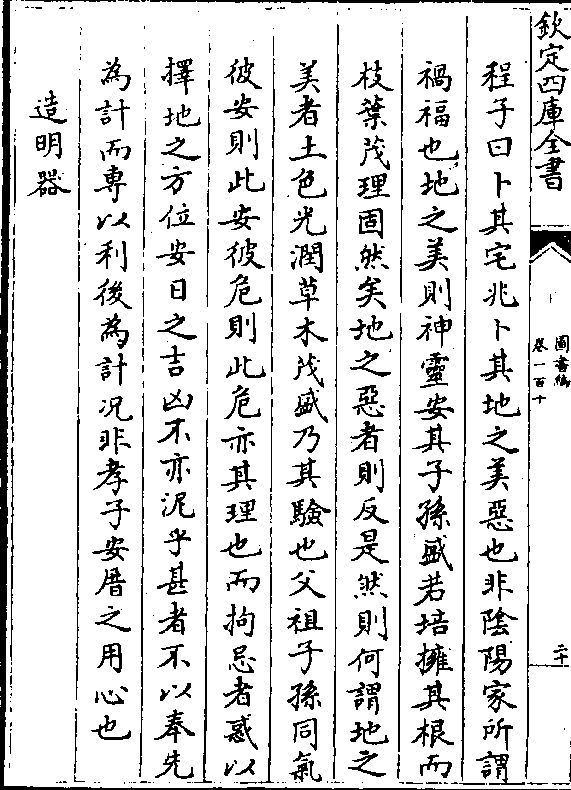 欽定四庫全書
圖書編
卷一百十
二十
程子曰卜其宅兆卜其地之美惡也非陰陽家所謂
禍福也地之美則神靈安其子孫盛若培擁其根而
枝葉茂理固然矣地之惡者則反是然則何謂地之
美者土色光潤草木茂盛乃其驗也父祖子孫同氣
彼安則此安彼危則此危亦其理也而拘忌者惑以
擇地之方位安日之吉凶不亦泥乎甚者不以奉先
為計而專以利後為計況非孝子安厝之用心也
造明器